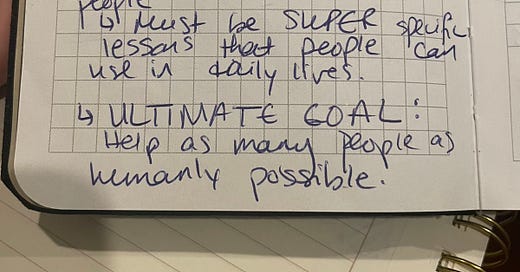 people
↳ Must be SUPER specific
lessons that people can
use in daily lives.
↳ ULTIMATE GOAL:
Help as many people as
humanly possible.